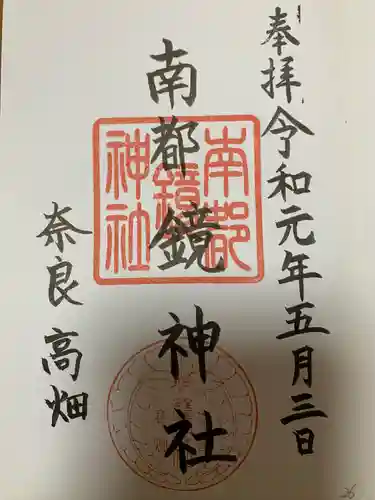 奉拝令和元年五月三日
南都鏡神社
南都
鏡
神社
奈良 高畑